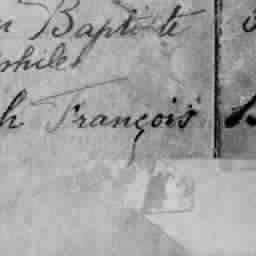 Baptiste
philet
h François